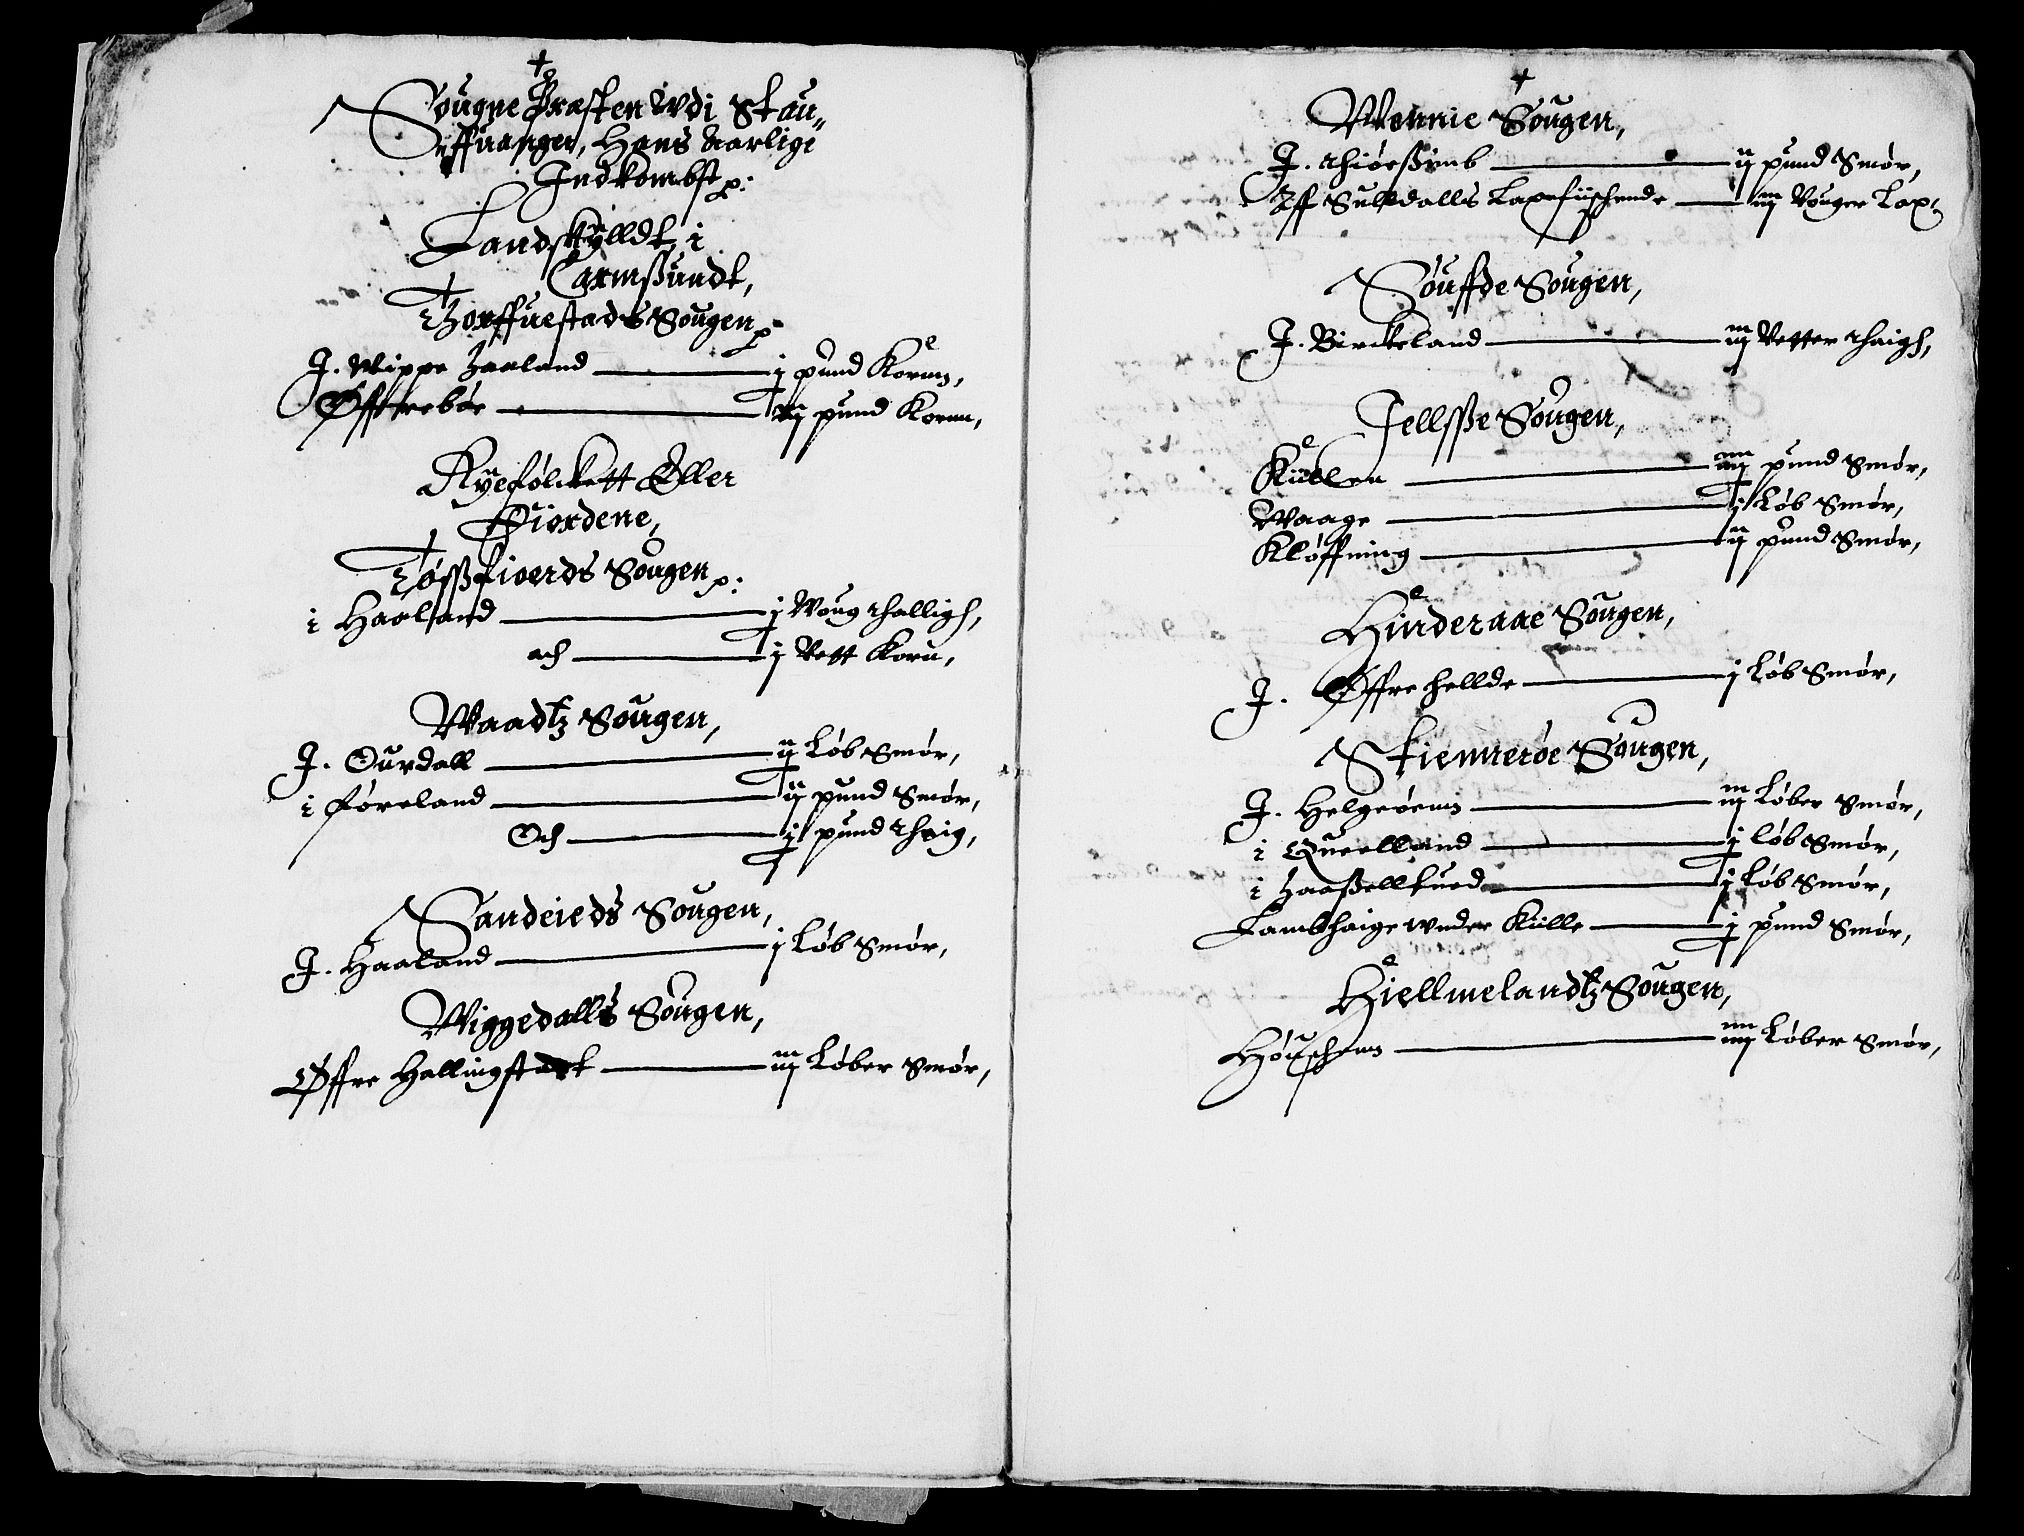 +
Sougne Præsten Wdi Stau„
„ffuanger, Hans Aarlige
Indkombst p:
Landskylldt i
Carmssundt,
Thorffuestads Sougen p:
J. Wippe Haaland — j pund Kornn,
Øffrebøe — iij pund Kornn,
Ryefølckett Eller
Fiordene,
Tøssfioerds Sougen p:
i Haaland — j Woug thalligh,
och — j Vett Korn,
Waadtz Sougen,
J. Ourdall — ij Løb Smør,
i Føreland — ij pund Smør,
Och — j pund thaig,
Sandeieds Sougen,
J. Haaland — j Løb Smør,
Wiggedalls Sougen,
Øffre Hallingstadt — iij Løber Smør,
+
Wennie Sougen,
J. thiøessimb — ij pund Smør,
Aff Suldalls Laxefiischende — iij Vouger Lax,
Souffde Sougen,
J. Birckeland — iij Vetter thaigh,
Jellsse Sougen,
Kiillen — iiij pund Smør,
Waage — j Løb Smør,
Kløffning — ij pund Smør,
Hinderaae Sougen,
J. Øffre hellde — j Løb Smør,
Skiennerøe Sougen,
J. Helgeøenn — iij Løber Smør,
i Queelland — j løb Smør,
i Haasselltued — j Løb Smør,
Lambhaige under Kiille — j pund Smør,
Hiellmelandtz Sougen,
Høuschenn — iiij Løber Smør,